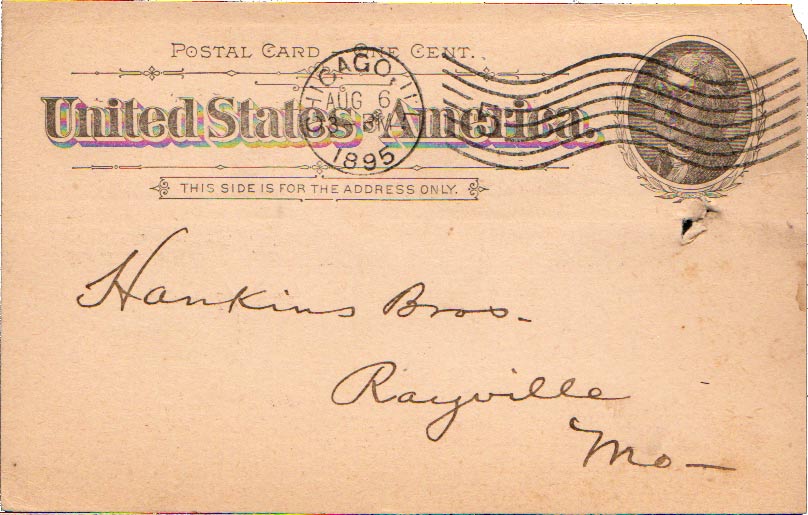 POSTAL CARD – ONE CENT.
United States of America.
CHICAGO, ILL.
AUG 6
1895
5
THIS SIDE IS FOR THE ADDRESS ONLY.
Hankins Bros.
Rayville
Mo—